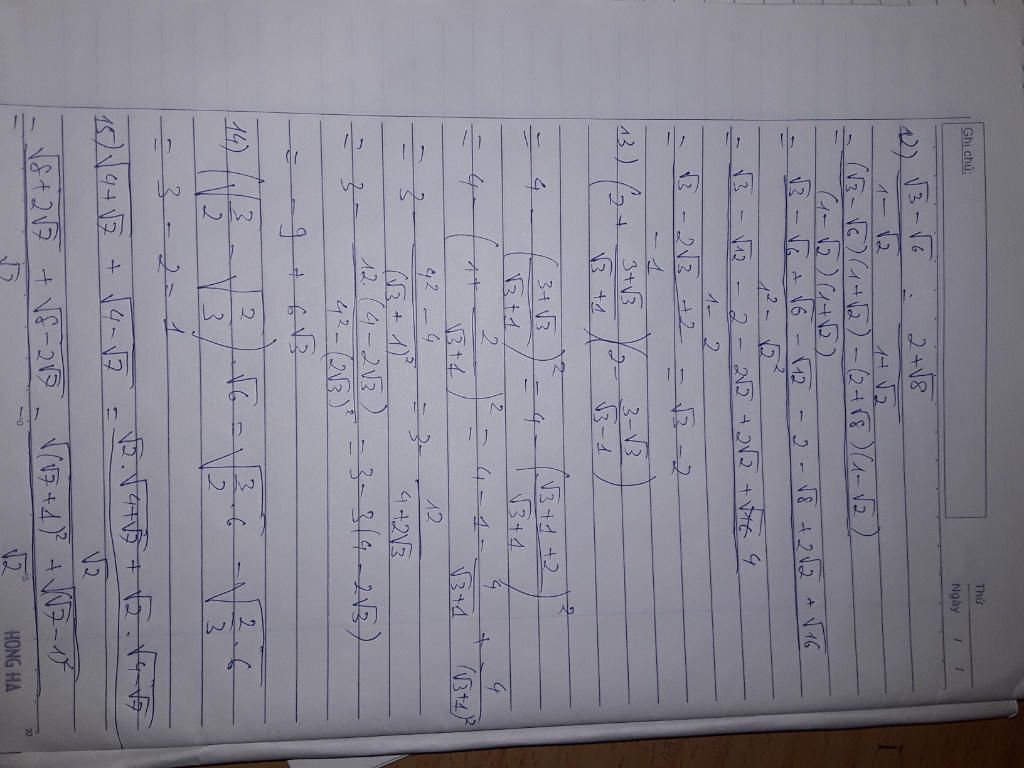 Ghi chú:
Thứ
Ngày / /
12) (√3 - √6)/(1 - √2) = (2 + √8)/(1 + √2)
= ((√3 - √6)(1 + √2) - (2 + √8)(1 - √2))/((1 - √2)(1 + √2))
= (√3 - √6 + √6 - √12 - 2 - √8 + 2√2 + √16)/(1² - √2²)
= (√3 - √12 - 2 - 2√2 + 2√2 + 4)/(1 - 2)
= (√3 - 2√3 + 2)/(-1) = √3 - 2
13) (2 + (3 + √3)/(√3 + 1))(2 - (3 - √3)/(√3 - 1))
= 4 - ((3 + √3)/(√3 + 1))² = 4 - ((√3 + 1 + 2)/(√3 + 1))²
= 4 - (1 + 2/(√3 + 1))² = 4 - 1 - 4/(√3 + 1) + 4/(√3 + 1)²
= 3 - (4² - 4)/(√3 + 1)² = 3 - 12/(4 + 2√3)
= 3 - 12(4 - 2√3)/(4² - (2√3)²) = 3 - 3(4 - 2√3)
= - 9 + 6√3
14) (√(3/2) - √(2/3)) . √6 = √(3/2 . 6) - √(2/3 . 6)
= 3 - 2 = 1
15) √(4 + √7) + √(4 - √7) = (√2 . √(4 + √7) + √2 . √(4 - √7))/√2
= (√(8 + 2√7) + √(8 - 2√7))/√2 = (√(√7 + 1)² + √(√7 - 1)²)/√2
HONG HA